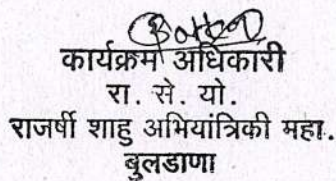 कार्यक्रम अधिकारी
रा. से. यो.
राजर्षी शाहु अभियांत्रिकी महा.
बुलडाणा